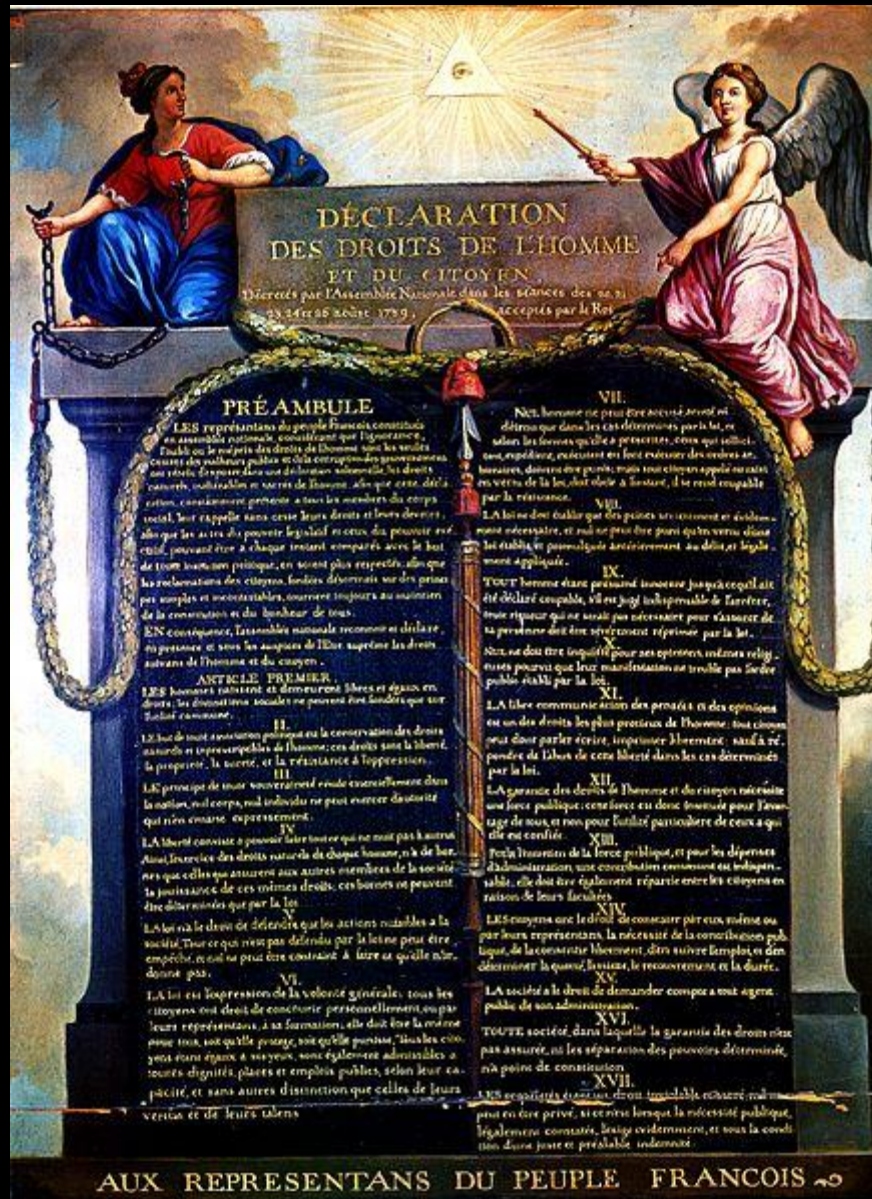 DÉCLARATION
DES DROITS DE L'HOMME
ET DU CITOYEN,
Décretés par l'Assemblée Nationale dans les séances des 20, 21
23, 24 et 26 août 1789, acceptés par le Roi
PRÉAMBULE
LES représentans du peuple François, constitués
en assemblée nationale, considérant que l'ignorance,
l'oubli ou le mépris des droits de l'homme sont les seules
causes des malheurs publics et de la corruption des gouvernemens
ont résolu d'exposer dans une déclaration solemnelle, les droits
naturels, inaliénables et sacrés de l'homme, afin que cette décla
ration, constamment présente a tous les membres du corps
social, leur rappelle sans cesse leurs droits et leurs devoirs,
afin que les actes du pouvoir législatif et ceux du pouvoir exé
cutif, pouvant être à chaque instant comparés avec le but
de toute institution politique, en soient plus respectés, afin que
les reclamations des citoyens, fondées désormais sur des princi
pes simples et incontestables, tournent toujours au maintien
de la constitution et du bonheur de tous.
EN conséquence, l'assemblée nationale reconnoit et déclare,
en presence et sous les auspices de l'Etre suprême les droits
suivans de l'homme et du citoyen.
ARTICLE PREMIER.
LES hommes naissent et demeurent libres et égaux en
droits, les distinctions sociales ne peuvent être fondées que sur
l'utilité commune.
II.
LE but de toute association politique est la conservation des droits
naturels et imprescriptibles de l'homme; ces droits sont la liberté,
la propriété, la sureté, et la résistance à l'oppression.
III.
LE principe de toute souveraineté réside essentiellement dans
la nation, nul corps, nul individu ne peut exercer d'autorité
qui n'en émane expressement.
IV.
LA liberté consiste a pouvoir faire tout ce qui ne nuit pas à autrui
Ainsi, l'exercice des droits naturels de chaque homme, n'a de bor-
nes que celles qui assurent aux autres membres de la société
la jouissance de ces mêmes droits; ces bornes ne peuvent
être déterminées que par la loi
V.
LA loi n'a le droit de défendre que les actions nuisibles a la
société. Tout ce qui n'est pas défendu par la loi ne peut être
empêché, et nul ne peut être contraint à faire ce qu'elle n'or-
donne pas.
VI.
LA loi est l'expression de la volonté générale; tous les
citoyens ont droit de concourir personnellement, ou par
leurs représentans, à sa formation; elle doit être la même
pour tous, soit qu'elle protege, soit qu'elle punisse. Tous les cito-
yens étans égaux à ses yeux, sont également admissibles a
toutes dignités, places et emplois publics, selon leur ca-
pacité, et sans autres distinction que celles de leurs
vertus et de leurs talens
VII.
NUL homme ne peut être accusé, arrêté ni
détenu que dans les cas déterminés par la loi, et
selon les formes qu'elle a prescrites, ceux qui sollici-
tent, expédient, exécutent ou font exécuter des ordres ar-
bitraires, doivent être punis; mais tout citoyen appelé ou saisi
en vertu de la loi, doit obéir a l'instant, il se rend coupable
par la résistance.
VIII.
LA loi ne doit établir que des peines strictement et évidem-
ment nécessaire, et nul ne peut être puni qu'en vertu d'une
loi établie et promulguée antérieurement au délit, et légale-
ment appliquée.
IX.
TOUT homme étant présumé innocent jusqu'à ce qu'il ait
été déclaré coupable, s'il est jugé indispensable de l'arrêter,
toute rigueur qui ne serait pas nécessaire pour s'assurer de
sa personne doit être sévèrement réprimée par la loi.
X.
NUL ne doit être inquiété pour ses opinions, mêmes religi-
euses pourvu que leur manifestation ne trouble pas l'ordre
public établi par la loi.
XI.
LA libre communication des pensées et des opinions
est un des droits les plus précieux de l'homme; tout citoyen
peut donc parler écrire, imprimer librement; sauf à ré-
pondre de l'abus de cette liberté dans les cas déterminés
par la loi.
XII.
LA garantie des droits de l'homme et du citoyen nécessite
une force publique; cette force est donc instituée pour l'avan-
tage de tous, et non pour l'utilité particulière de ceux a qui
elle est confiée.
XIII.
Pour l'entretien de la force publique, et pour les dépenses
d'administration, une contribution commune est indispen-
sable; elle doit être également répartie entre les citoyens en
raison de leurs facultées
XIV.
LES citoyens ont le droit de constater par eux même ou
par leurs représentans, la nécessité de la contribution pub-
lique, de la consentir librement, d'en suivre l'emploi, et d'en
déterminer la quotité, l'assiette, le recouvrement et la durée.
XV.
LA société a le droit de demander compte a tout agent
public de son administration.
XVI.
TOUTE société, dans laquelle la garantie des droits n'est
pas assurée, ni les séparation des pouvoirs déterminée,
n'a point de constitution
XVII.
LES propriétés étant un droit inviolable et sacré, nul ne
peut en être privé, si ce n'est lorsque la nécessité publique,
légalement constatée, l'exige evidemment, et sous la condi-
tion d'une juste et préalable indemnité.
AUX REPRESENTANS DU PEUPLE FRANCOIS